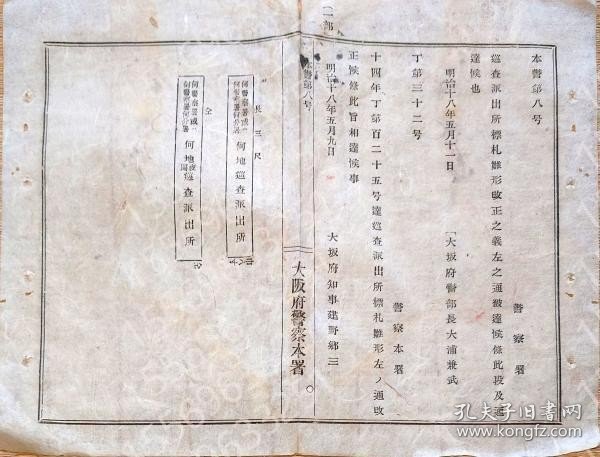 本警第八号
警察署
巡査派出所標札雛形改正之義左之通被達候条此段及通
達候也
明治十八年五月十一日
大坂府警部長大浦兼武
丁第三十二号
警察本署
十四年丁第百二十五号達巡査派出所標札雛形左ノ通改
正候条此旨相達候事
明治十八年五月九日
大坂府知事建野郷三
本警第八号
大阪府警察本署
長三尺
何警察署或ハ
何警察署何分署
何地巡査派出所
仝
何警察署或ハ
何警察署何分署
何地夜間巡査派出所
仝
孔夫子旧书网
www.kongfz.com